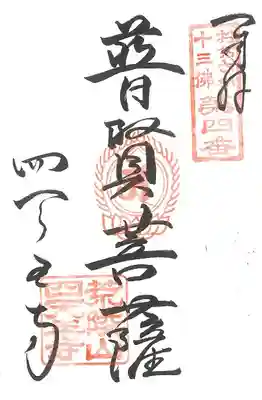 奉拝
十三佛第四番
普賢菩薩
四天王寺
荒陵山
四天王寺